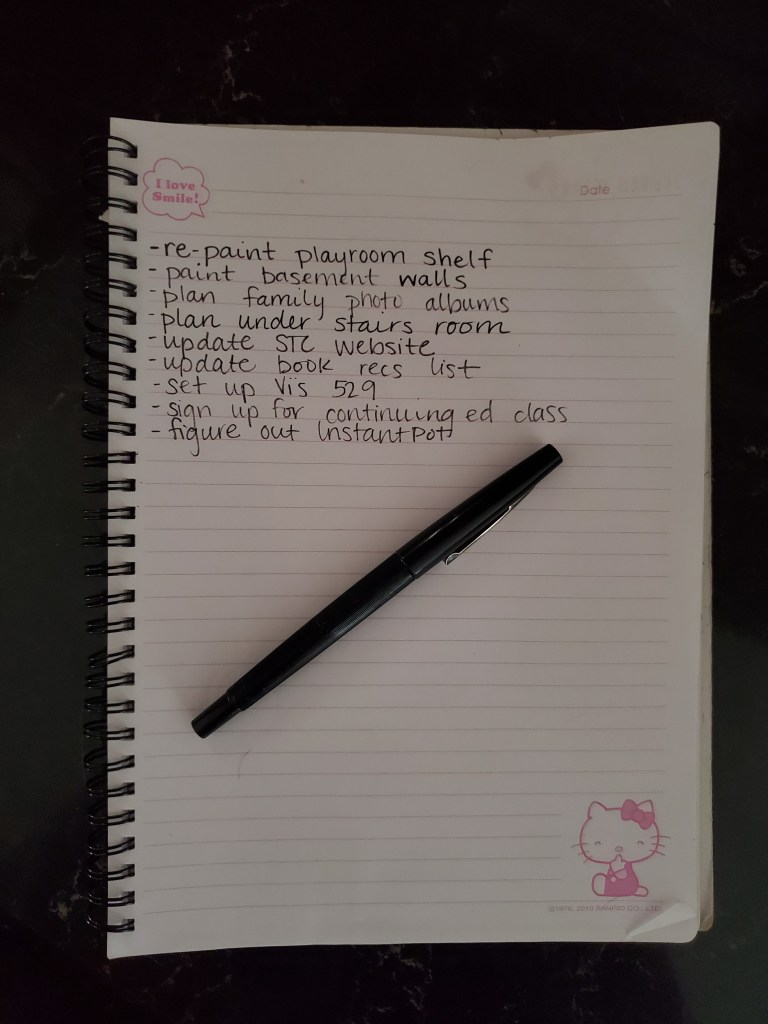 I love
Smile!
Date
-re-paint playroom shelf
-paint basement walls
-plan family photo albums
-plan under stairs room
-update STC website
-update book recs list
-set up Vi's 529
-sign up for continuing ed class
-figure out InstantPot
SANRIO CO., LTD.